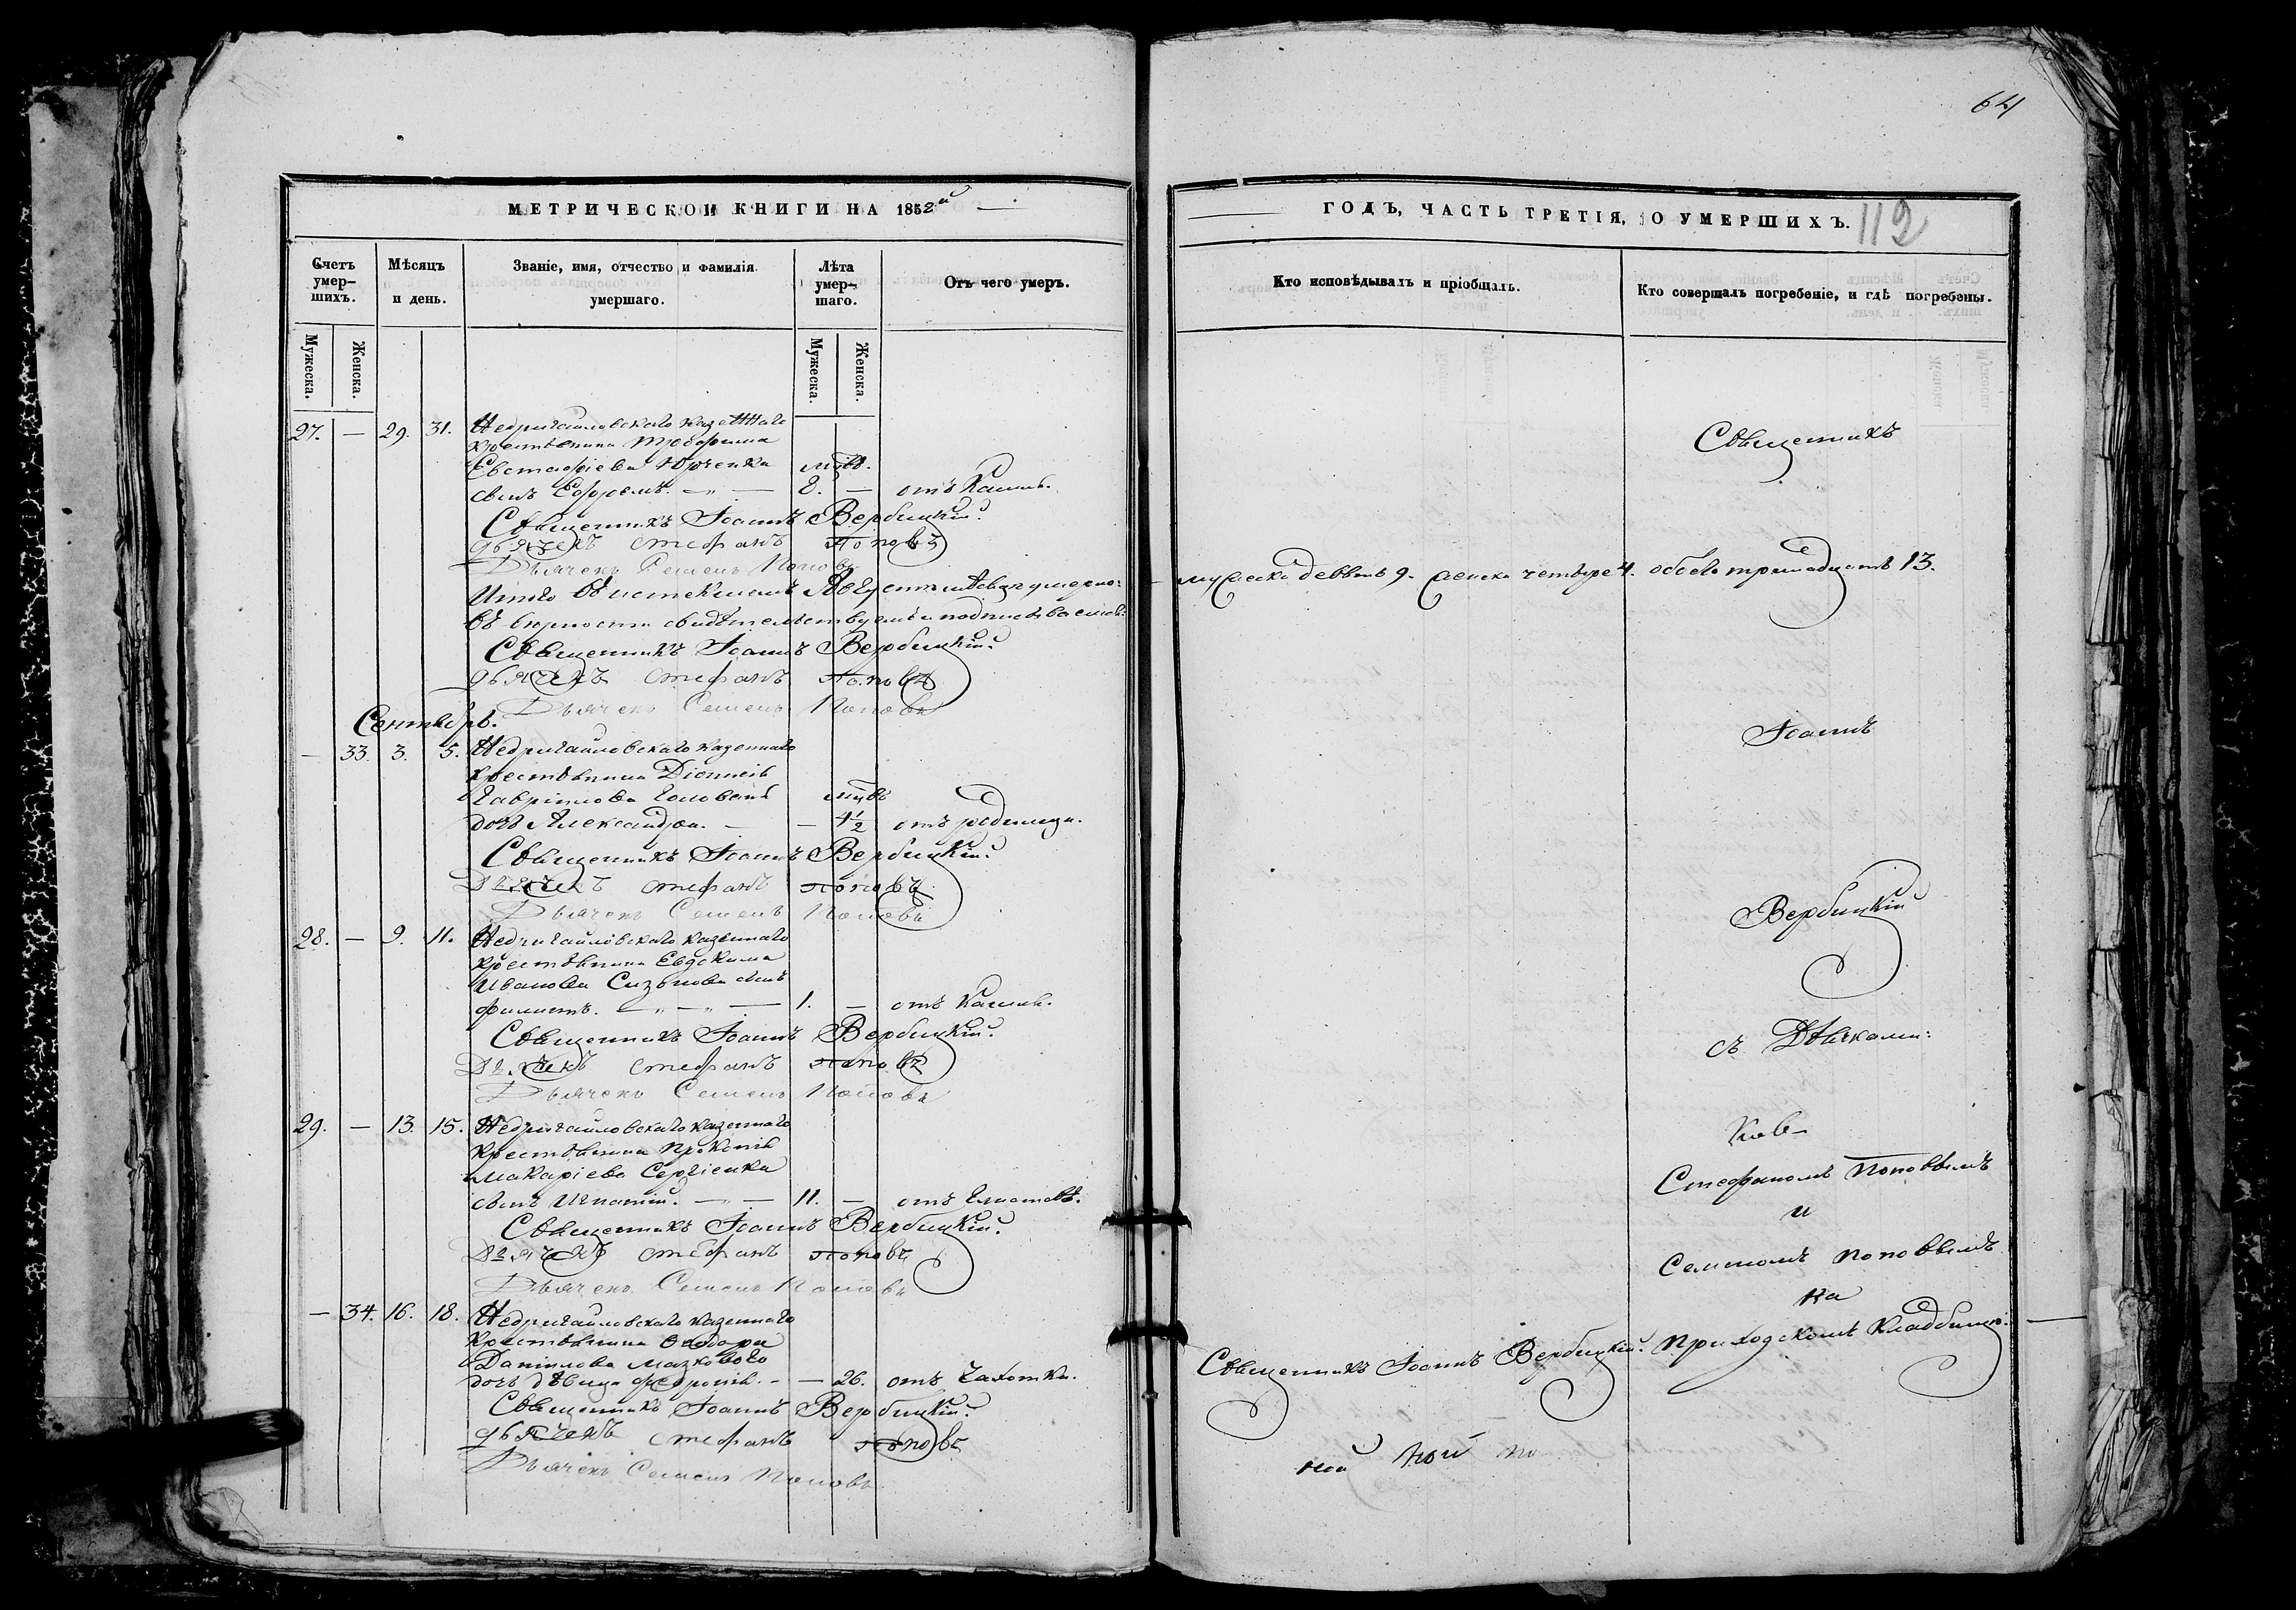 64
МЕТРИЧЕСКОЙ КНИГИ НА 1852й
ГОДЪ, ЧАСТЬ ТРЕТІЯ, О УМЕРШИХЪ.
112
Счетъ умер-
шихъ.
Мѣсяцъ
и день.
Званіе, имя, отчество и фамилія
умершаго.
Лѣта
умер-
шаго.
Отъ чего умеръ.
Кто исповѣдывалъ и пріобщалъ.
Кто совершалъ погребеніе, и гдѣ погребены.
Мужеска.
Женска.
Мужеска.
Женска.
27. — 29. 31. Недригайловскаго казеннаго
крестьянина Трофима
Евстафіева Юрченка
сынъ Ефремъ. — 8. — отъ Кашля.
Священникъ Іоаннъ Вербицкій.
дьячекъ стефанъ поповъ
Дьячекъ Семенъ Поповъ
Итого въ истекшемъ Августѣ мѣсяцѣ умерло:
мужеска девять 9. женска четыре 4. обоего тринадцать 13.
въ вѣрности свидѣтельствуемъ и подписываемся:
Священникъ Іоаннъ Вербицкій.
дьячекъ стефанъ поповъ
Дьячекъ Семенъ Поповъ
Сентябрь.
— 33. 3. 5. Недригайловскаго казеннаго
крестьянина Діонисія
Гавріилова
дочь Александра. — — 4½ отъ родимца.
Священникъ Іоаннъ Вербицкій.
Дьячекъ стефанъ поповъ
Дьячекъ Семенъ Поповъ
28. — 9. 11. Недригайловскаго казеннаго
крестьянина Евдокима
Иванова сынъ
1. — отъ Кашля.
Священникъ Іоаннъ Вербицкій.
Дьячекъ стефанъ поповъ
Дьячекъ Семенъ Поповъ
29. — 13. 15. Недригайловскаго казеннаго
крестьянина Прокопія
Макаріева Сергіенка
сынъ Игнатій. — 11. — отъ
Священникъ Іоаннъ Вербицкій.
Дьячекъ стефанъ поповъ
Дьячекъ Семенъ Поповъ
— 34. 16. 18. Недригайловскаго казеннаго
крестьянина Ѳеодора
Даніилова
дочь дѣвица — 26. отъ Чахотки.
Священникъ Іоаннъ Вербицкій.
дьячекъ стефанъ поповъ
Дьячекъ Семенъ Поповъ
Священникъ Іоаннъ Вербицкій.
Священникъ
Іоаннъ
Вербицкій
съ Дьячками:
Стефаномъ Поповымъ
и
Семеномъ Поповымъ
на
Приходскомъ Кладбищѣ.